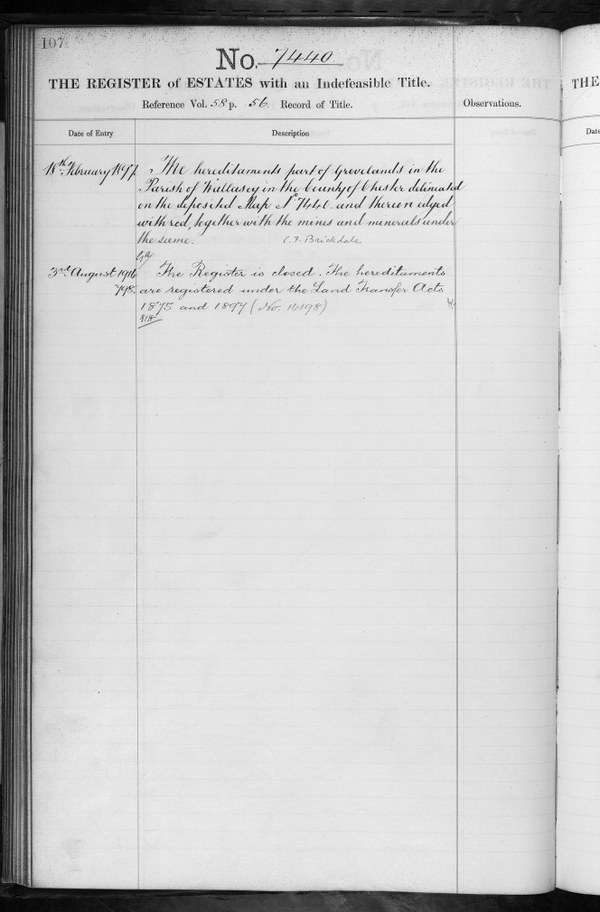 107
No. 7440
THE REGISTER of ESTATES with an Indefeasible Title.
Reference Vol. 58 p. 56. Record of Title.
Observations.
Date of Entry
Description
18th February 1897
The hereditaments part of Grovelands in the
Parish of Wallasey in the County of Chester delineated
on the deposited Map No 7440. and thereon edged
with red, together with the mines and minerals under
the same.
C. F. Brickdale
3rd August 1916
The Register is closed. The hereditaments
are registered under the Land Transfer Acts
1875 and 1897 (No. 14198)
THE
Date